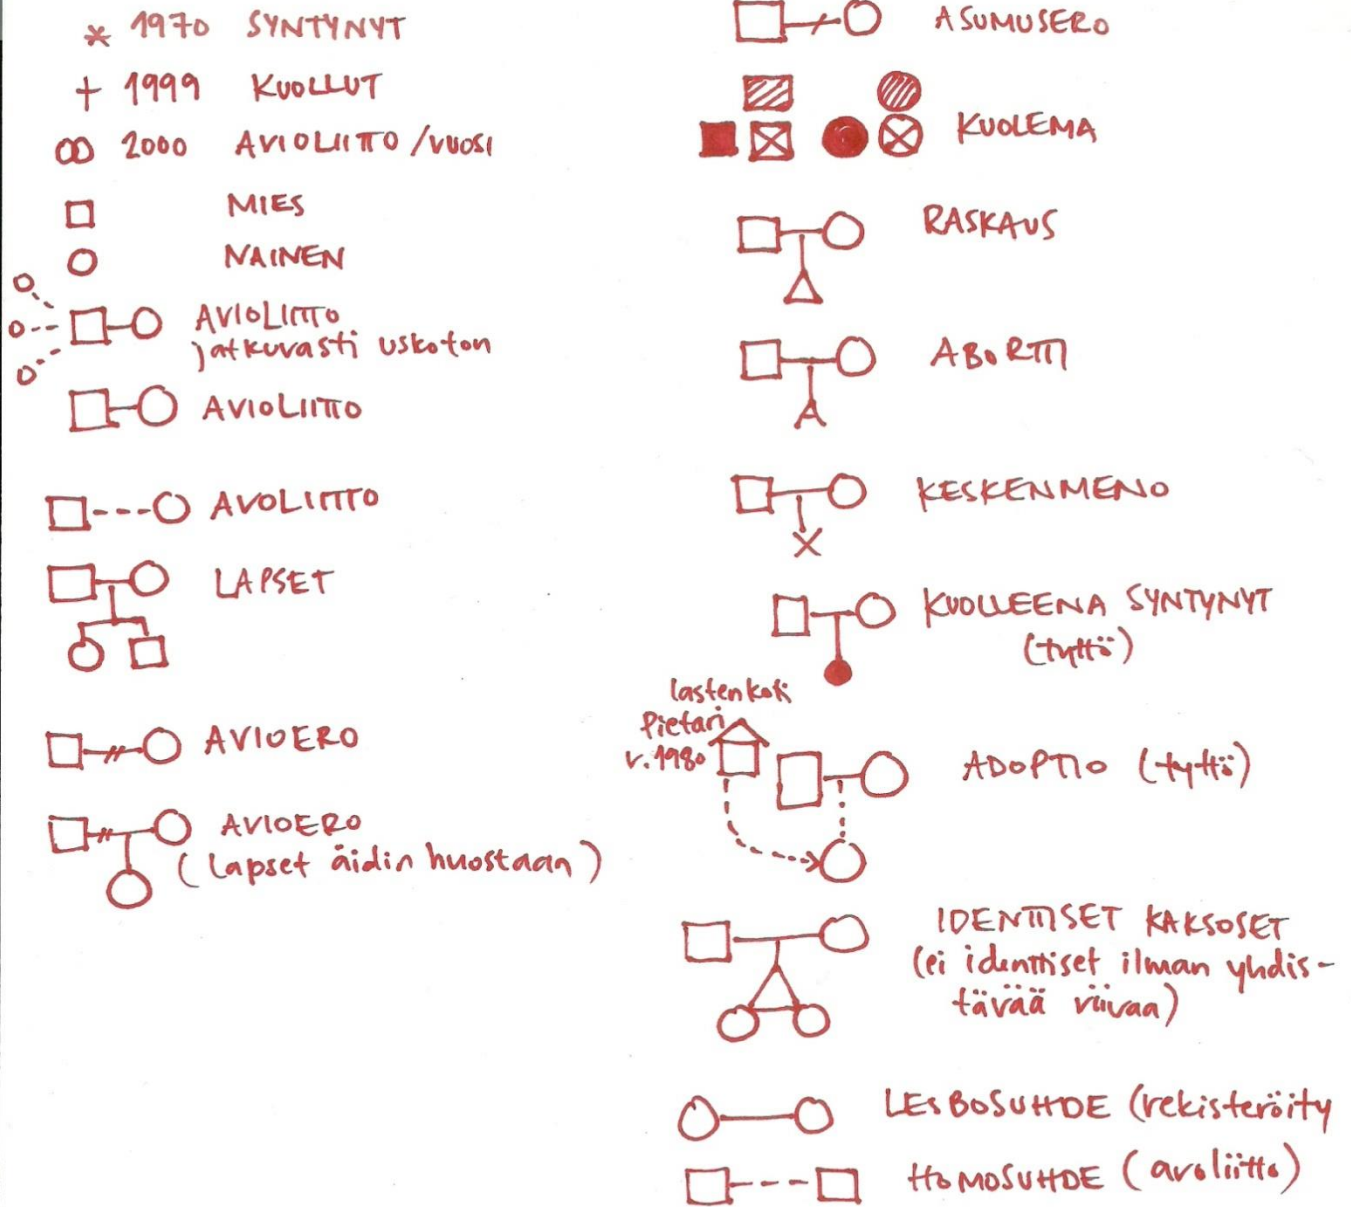 * 1970 SYNTYNYT
† 1999 KUOLLUT
∞ 2000 AVIOLIITTO /VUOSI
MIES
NAINEN
AVIOLIITTO
jatkuvasti uskoton
AVIOLIITTO
AVOLIITTO
LAPSET
AVIOERO
AVIOERO
(lapset äidin huostaan)
ASUMUSERO
KUOLEMA
RASKAUS
ABORTTI
A
KESKENMENO
KUOLLEENA SYNTYNYT
(tyttö)
lastenkoti
Pietari
v.1980
ADOPTIO (tyttö)
IDENTTISET KAKSOSET
(ei identtiset ilman yhdis-
tävää viivaa)
LESBOSUHDE (rekisteröity
HOMOSUHDE (avoliitto)